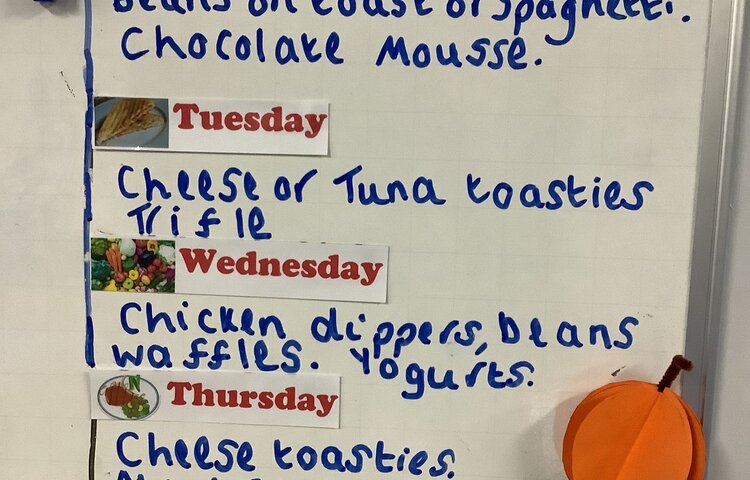 beans on toast or spaghetti.
Chocolate Mousse.
Tuesday
Cheese or Tuna toasties
Trifle
Wednesday
Chicken dippers, beans
waffles. Yogurts.
Thursday
Cheese toasties.